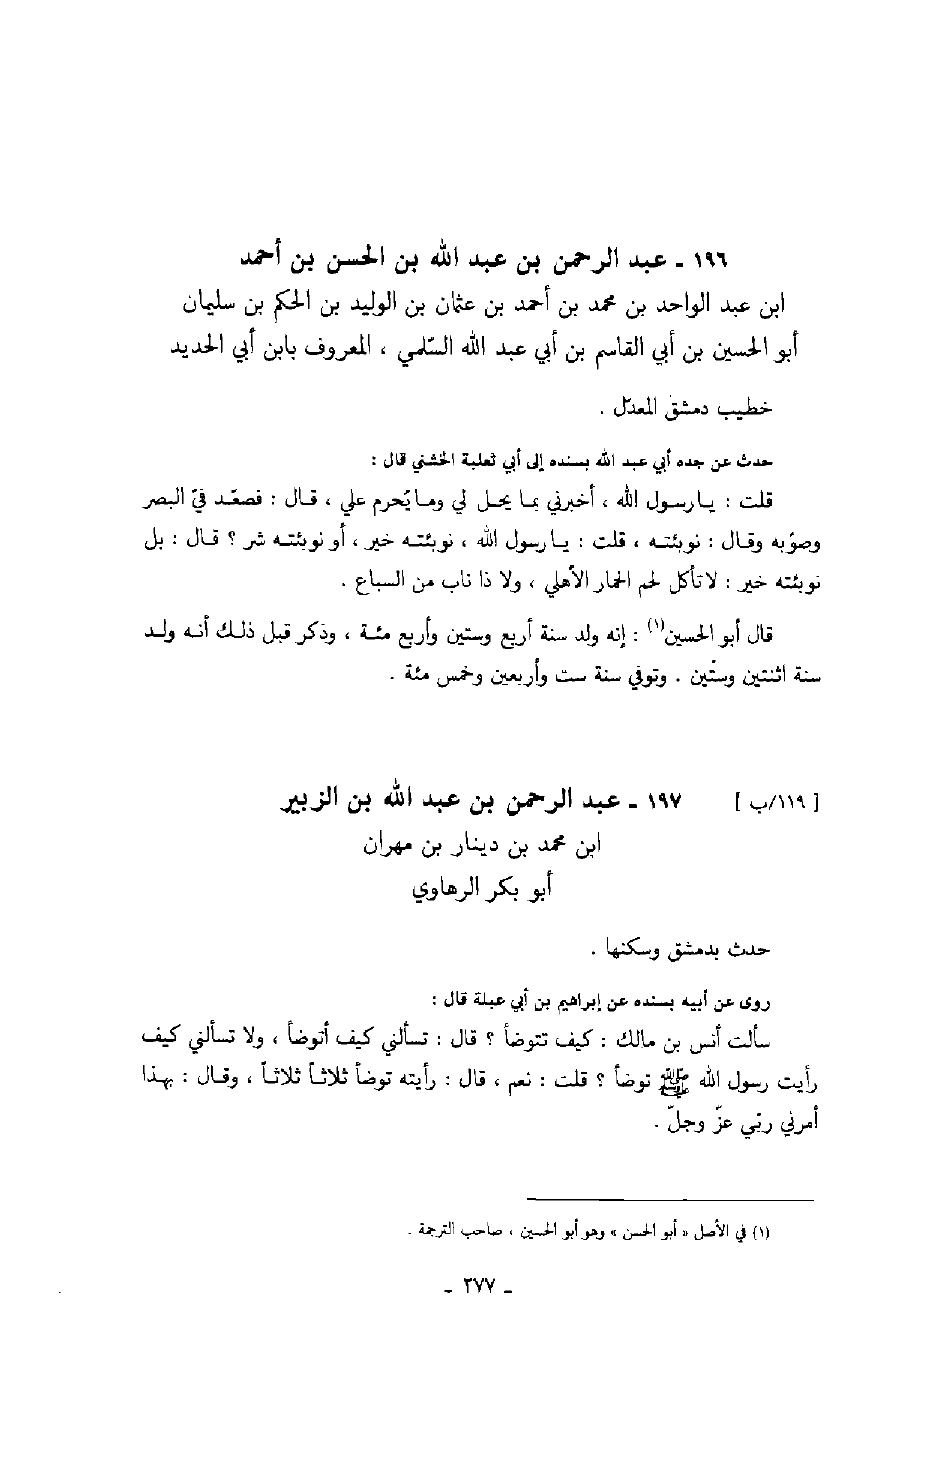 ١٩٦ ـ عبد الرحمن بن عبد الله بن الحسن بن أحمد
ابن عبد الواحد بن محمد بن أحمد بن عثمان بن الوليد بن الحكم بن سليمان
أبو الحسين بن أبي القاسم بن أبي عبد الله السّلمي ، المعروف بابن أبي الحديد
خطيب دمشق المعدّل .
حدث عن جده أبي عبد الله بسنده إلى أبي ثعلبة الخشني قال :
قلت : يا رسول الله ، أخبرني بما يحل لي وما يَحرم علي ، قال : فصعّد فيّ البصر
وصوّبه وقال : نويبتـه ، قلت : يا رسول الله ، نويبتـه خير ، أو نويبتـه شر ؟ قال : بل
نويبته خير : لا تأكل لحم الحمار الأهلي ، ولا ذا ناب من السباع .
قال أبو الحسين(١) : إنه ولد سنة أربع وستين وأربع مئـة ، وذكر قبل ذلـك أنـه ولـد
سنة اثنتين وستّين . وتوفي سنة ست وأربعين وخمس مئة .
[ ١١٩/ب ] ١٩٧ ـ عبد الرحمن بن عبد الله بن الزبير
ابن محمد بن دينار بن مهران
أبو بكر الرهاوي
حدث بدمشق وسكنها .
روى عن أبيه بسنده عن إبراهيم بن أبي عبلة قال :
سألت أنس بن مالك : كيف تتوضأ ؟ قال : تسألني كيف أتوضأ ، ولا تسألني كيف
رأيت رسول الله ﷺ توضأ ؟ قلت : نعم ، قال : رأيته توضأ ثلاثاً ثلاثاً ، وقال : بهذا
أمرني ربّي عزّ وجلّ .
(١) في الأصل « أبو الحسن » وهو أبو الحسين ، صاحب الترجمة .
ـ ٢٧٧ ـ